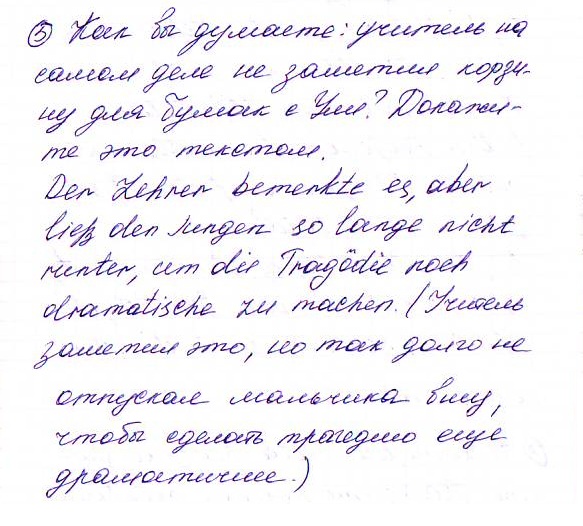 ⑤ Как вы думаете: учитель на
самом деле не заметил корзи-
ну для бумаг с Ули? Докажи-
те это текстом.
Der Lehrer bemerkte es, aber
ließ den Jungen so lange nicht
runter, um die Tragödie noch
dramatische zu machen. (Учитель
заметил это, но так долго не
отпускал мальчика вниз,
чтобы сделать трагедию еще
драматичние.)